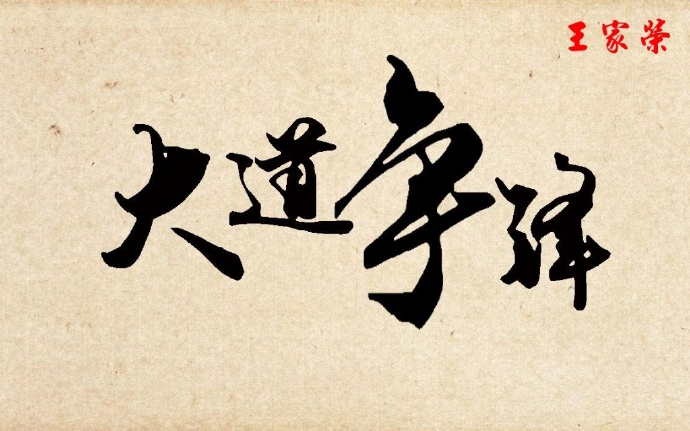 王家榮
大道争锋